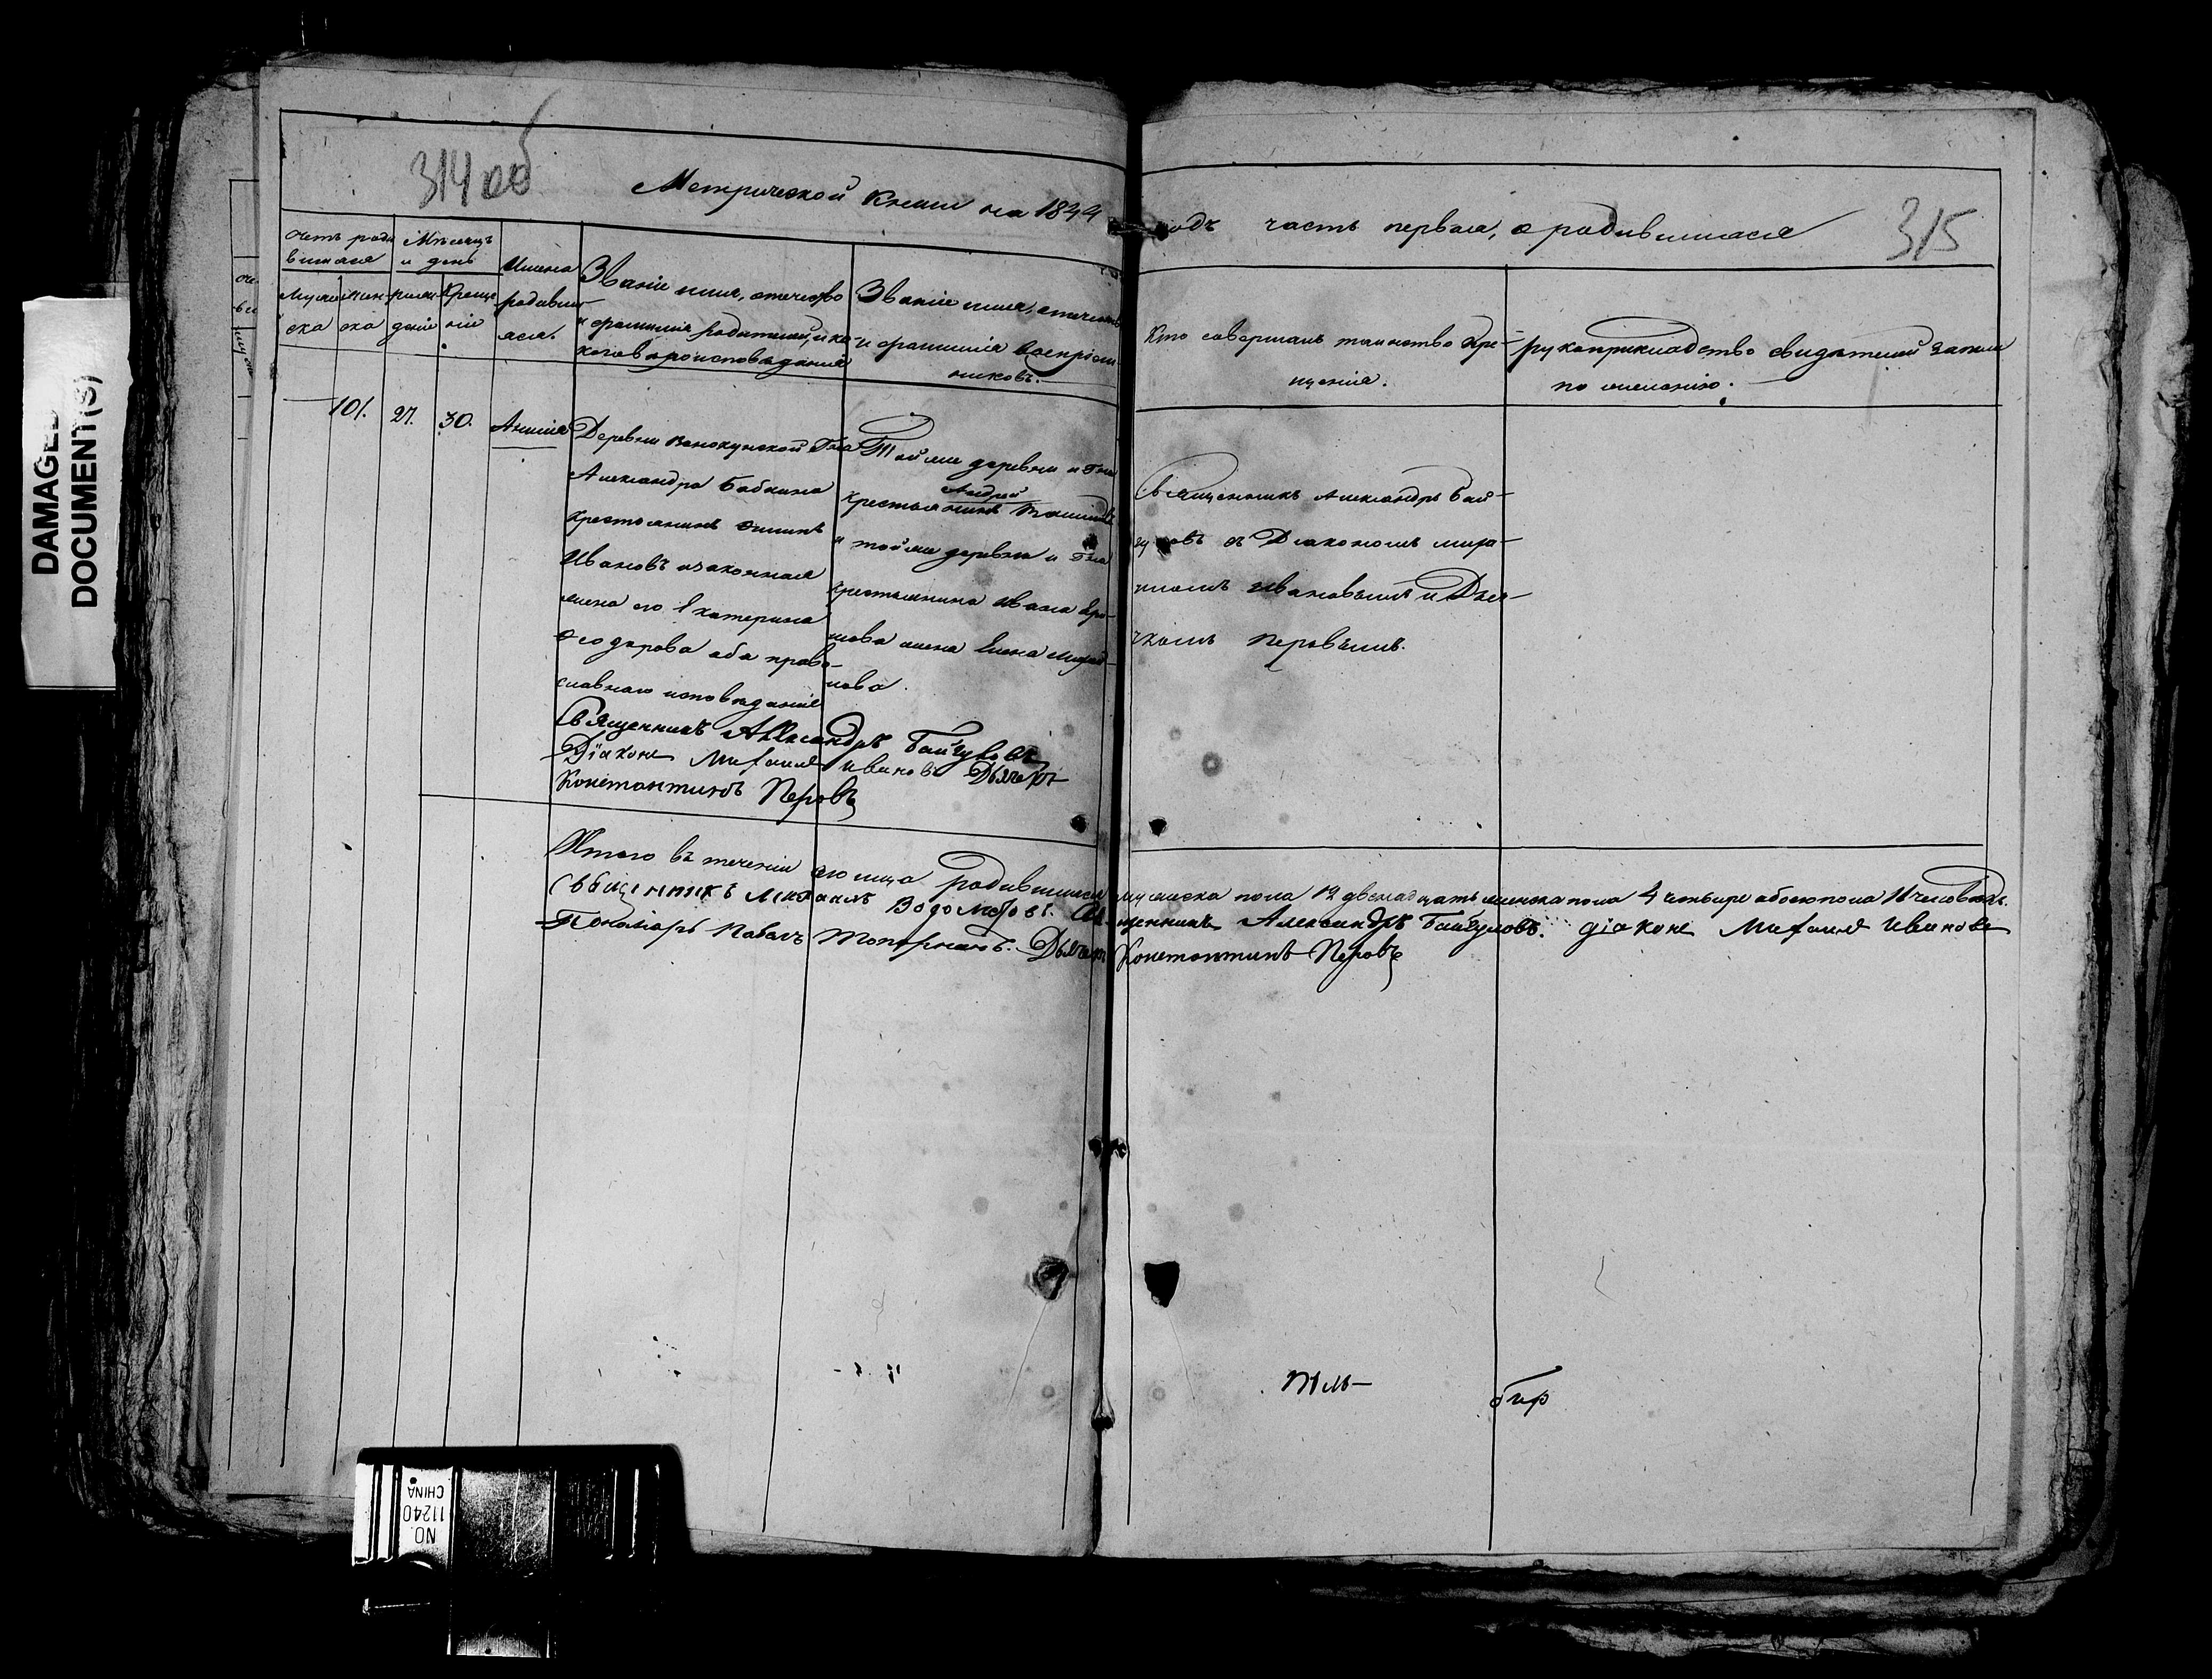 DAMAGED
DOCUMENT(S)
314 об
Метрической книги на 1844
годъ часть первая, о родившихся
315
Счетъ роди
вшихся
Мѣсяцъ
и день
Имена
родивши
хся.
Муже
ска
жен
ска
рож
денія
Креще
нія
Званіе имя, отчество
и фамилія родителей, и ка
кого вѣроисповѣданія
Званіе имя, отчество
и фамилія воспріем
никовъ.
Кто совершалъ таинство Кре-
щенія.
рукоприкладство свидѣтелей записи
по желанію.
101. 27. 30. Анисія
Деревни Г-на
Александра Бабкина
крестьянинъ
Ивановъ и законная
жена его Екатерина
Феодорова оба право-
славнаго исповѣданія
Той же деревни и Г-на
Андрей
крестьянинъ
и той же деревни и Г-на
крестьянина Ивана
жена Елена
нова.
Священникъ Александръ Бай-
съ Діакономъ Миха-
иломъ Ивановымъ и Дья-
чкомъ Перовымъ.
Священникъ Александръ Байгуловъ
Діаконъ Михаилъ Ивановъ Дьячекъ
Константинъ Перовъ
Итого въ теченіи родившихся мужеска пола 12 двенадцать женска пола 4 четыре обоего пола 16 человѣкъ.
Священникъ Михаилъ Водолеговъ. Священникъ Александръ Байгуловъ. діаконъ Михаилъ Ивановъ
Пономарь Павелъ Топорнинъ. Дьячекъ Константинъ Перовъ
NO.
11240
CHINA